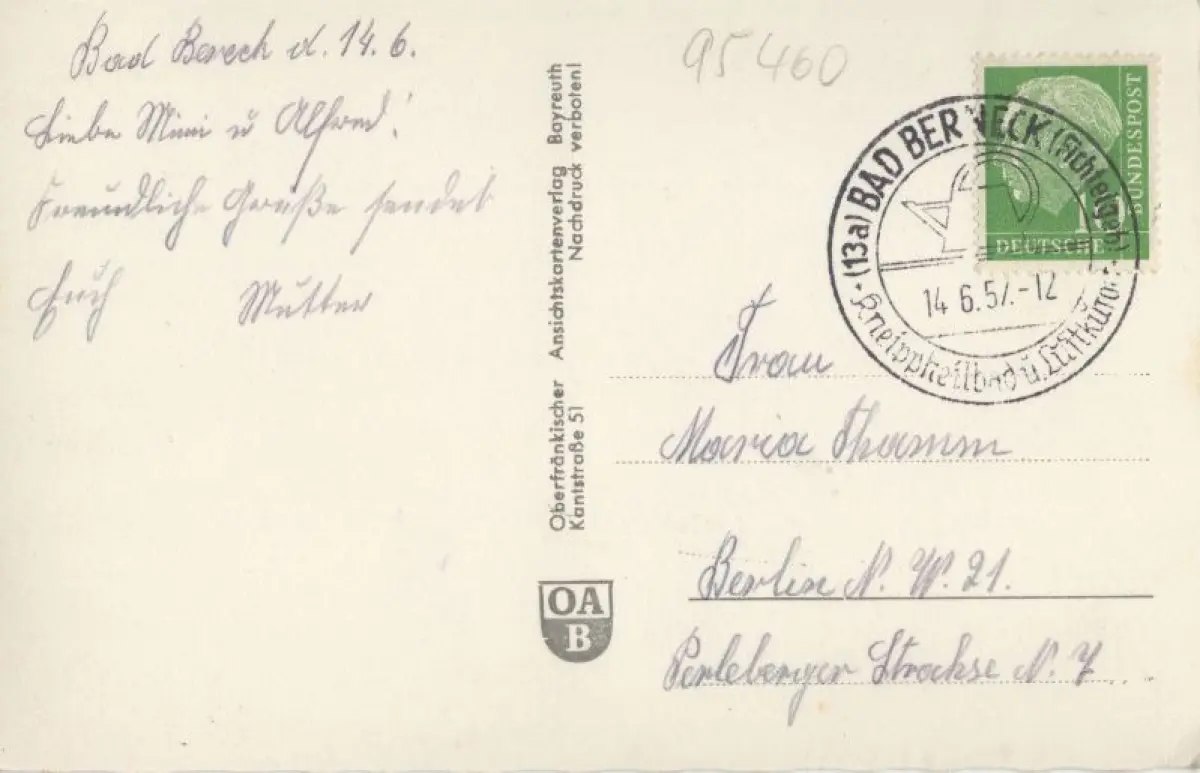 Bad Bereck d. 14.6.
Liebe Mimi u Alfred!
Freundliche Grüße sendet
Euch Mutter
Oberfränkischer Ansichtskartenverlag Bayreuth
Kantstraße 51 Nachdruck verboten!
OA
B
95460
BUNDESPOST
10
DEUTSCHE
(13a) BAD BERNECK (Fichtelgeb)
14.6.57.-12
Kneippheilbad u. Luftkuro
Frau
Maria Thamm
Berlin N. W. 21.
Perleberger Strahse N. 7